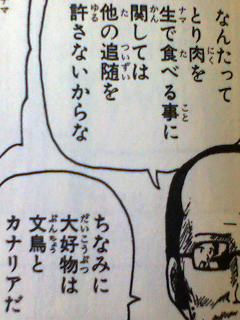 なんたって
とり肉を
生で食べる事に
関しては
他の追随を
許さないからな
ちなみに
大好物は
文鳥と
カナリアだ